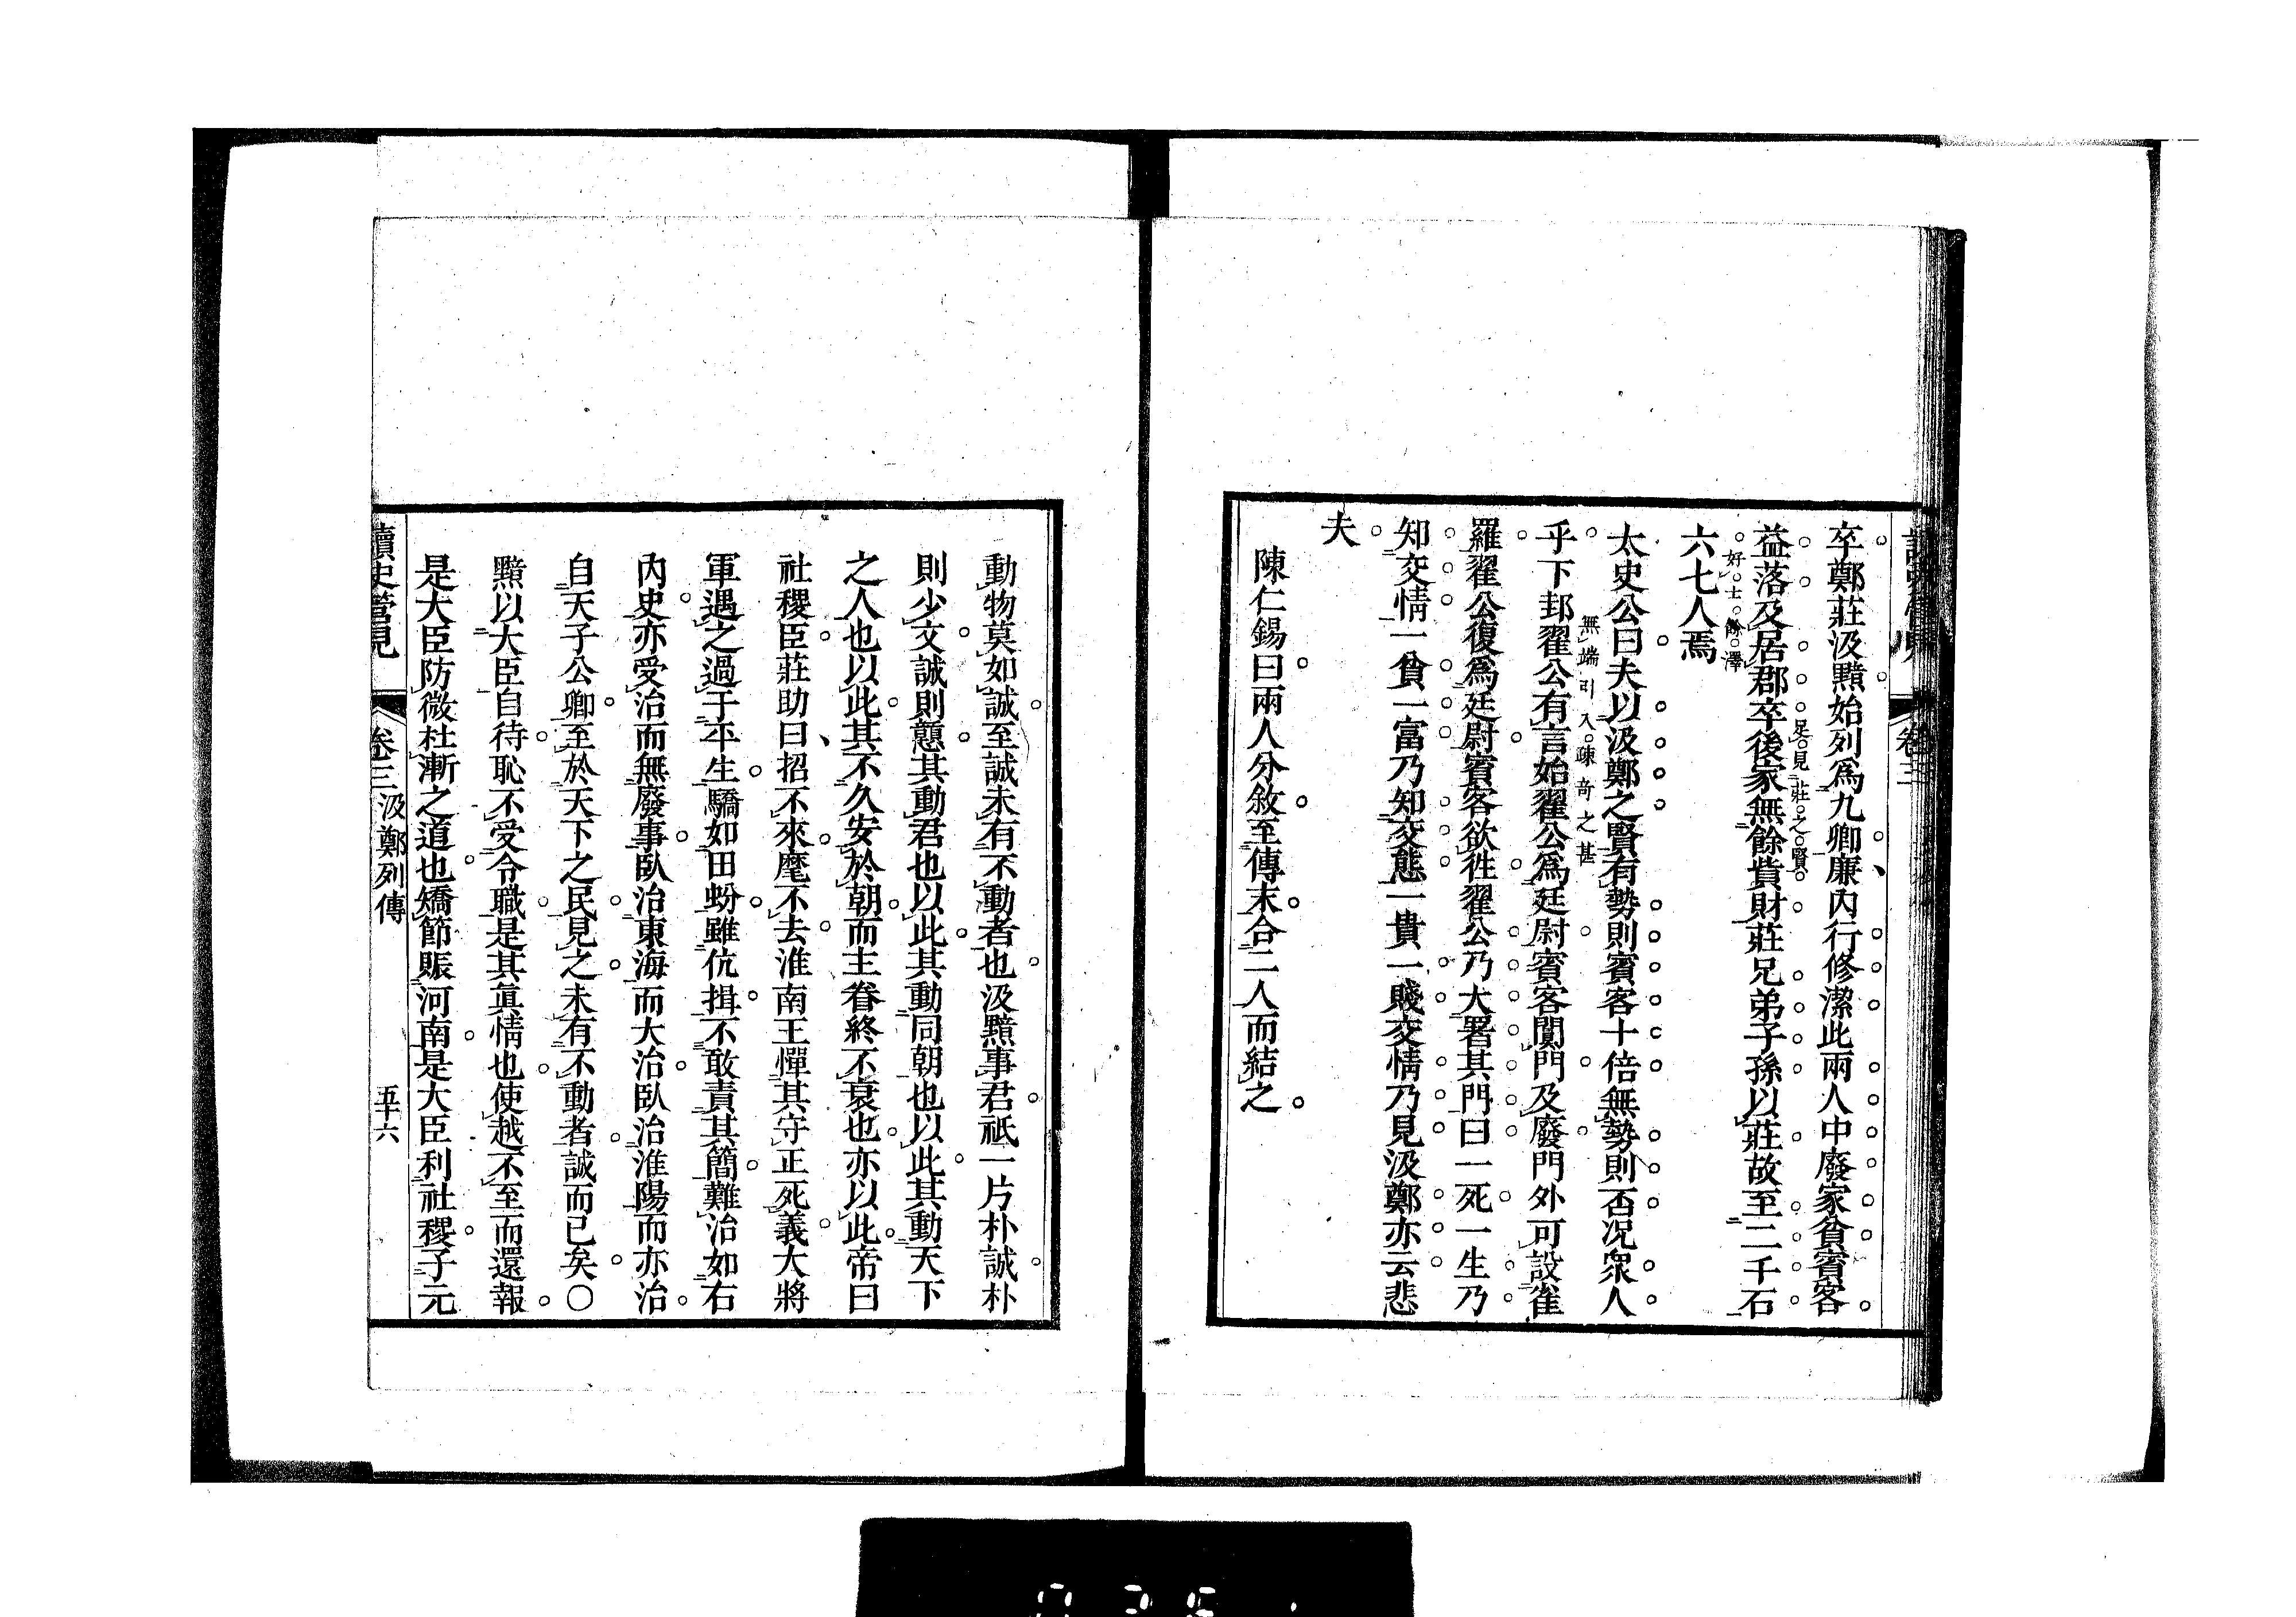 卒鄭莊汲黯始列爲九卿廉內行修潔此兩人中廢家貧賓客
益落及居郡卒後家無餘貲財莊兄弟子孫以莊故至二千石
足見莊之賢
六七人焉
好士餘澤
太史公曰夫以汲鄭之賢有勢則賓客十倍無勢則否況衆人
無端引入疎奇之甚
乎下邽翟公有言始翟公爲廷尉賓客闐門及廢門外可設雀
羅翟公復爲廷尉賓客欲徃翟公乃大署其門曰一死一生乃
知交情一貧一富乃知交態一貴一賤交情乃見汲鄭亦云悲
夫
陳仁錫曰兩人分敘至傳末合二人而結之
動物莫如誠至誠未有不動者也汲黯事君祇一片朴誠朴
則少文誠則戇其動君也以此其動同朝也以此其動天下
之人也以此其不久安於朝而主眷終不衰也亦以此帝曰
社稷臣莊助曰招不來麾不去淮南王憚其守正死義大將
軍遇之過于平生驕如田蚡雖伉揖不敢責其簡難治如右
內史亦受治而無廢事臥治東海而大治臥治淮陽而亦治
自天子公卿至於天下之民見之未有不動者誠而已矣○
黯以大臣自待恥不受令職是其眞情也使越不至而還報
是大臣防微杜漸之道也矯節賑河南是大臣利社稷子元
讀史管見 卷三 汲鄭列傳 五十六